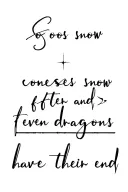 Sooos snow
coneses snow
ffter and
feven dragons
have their end